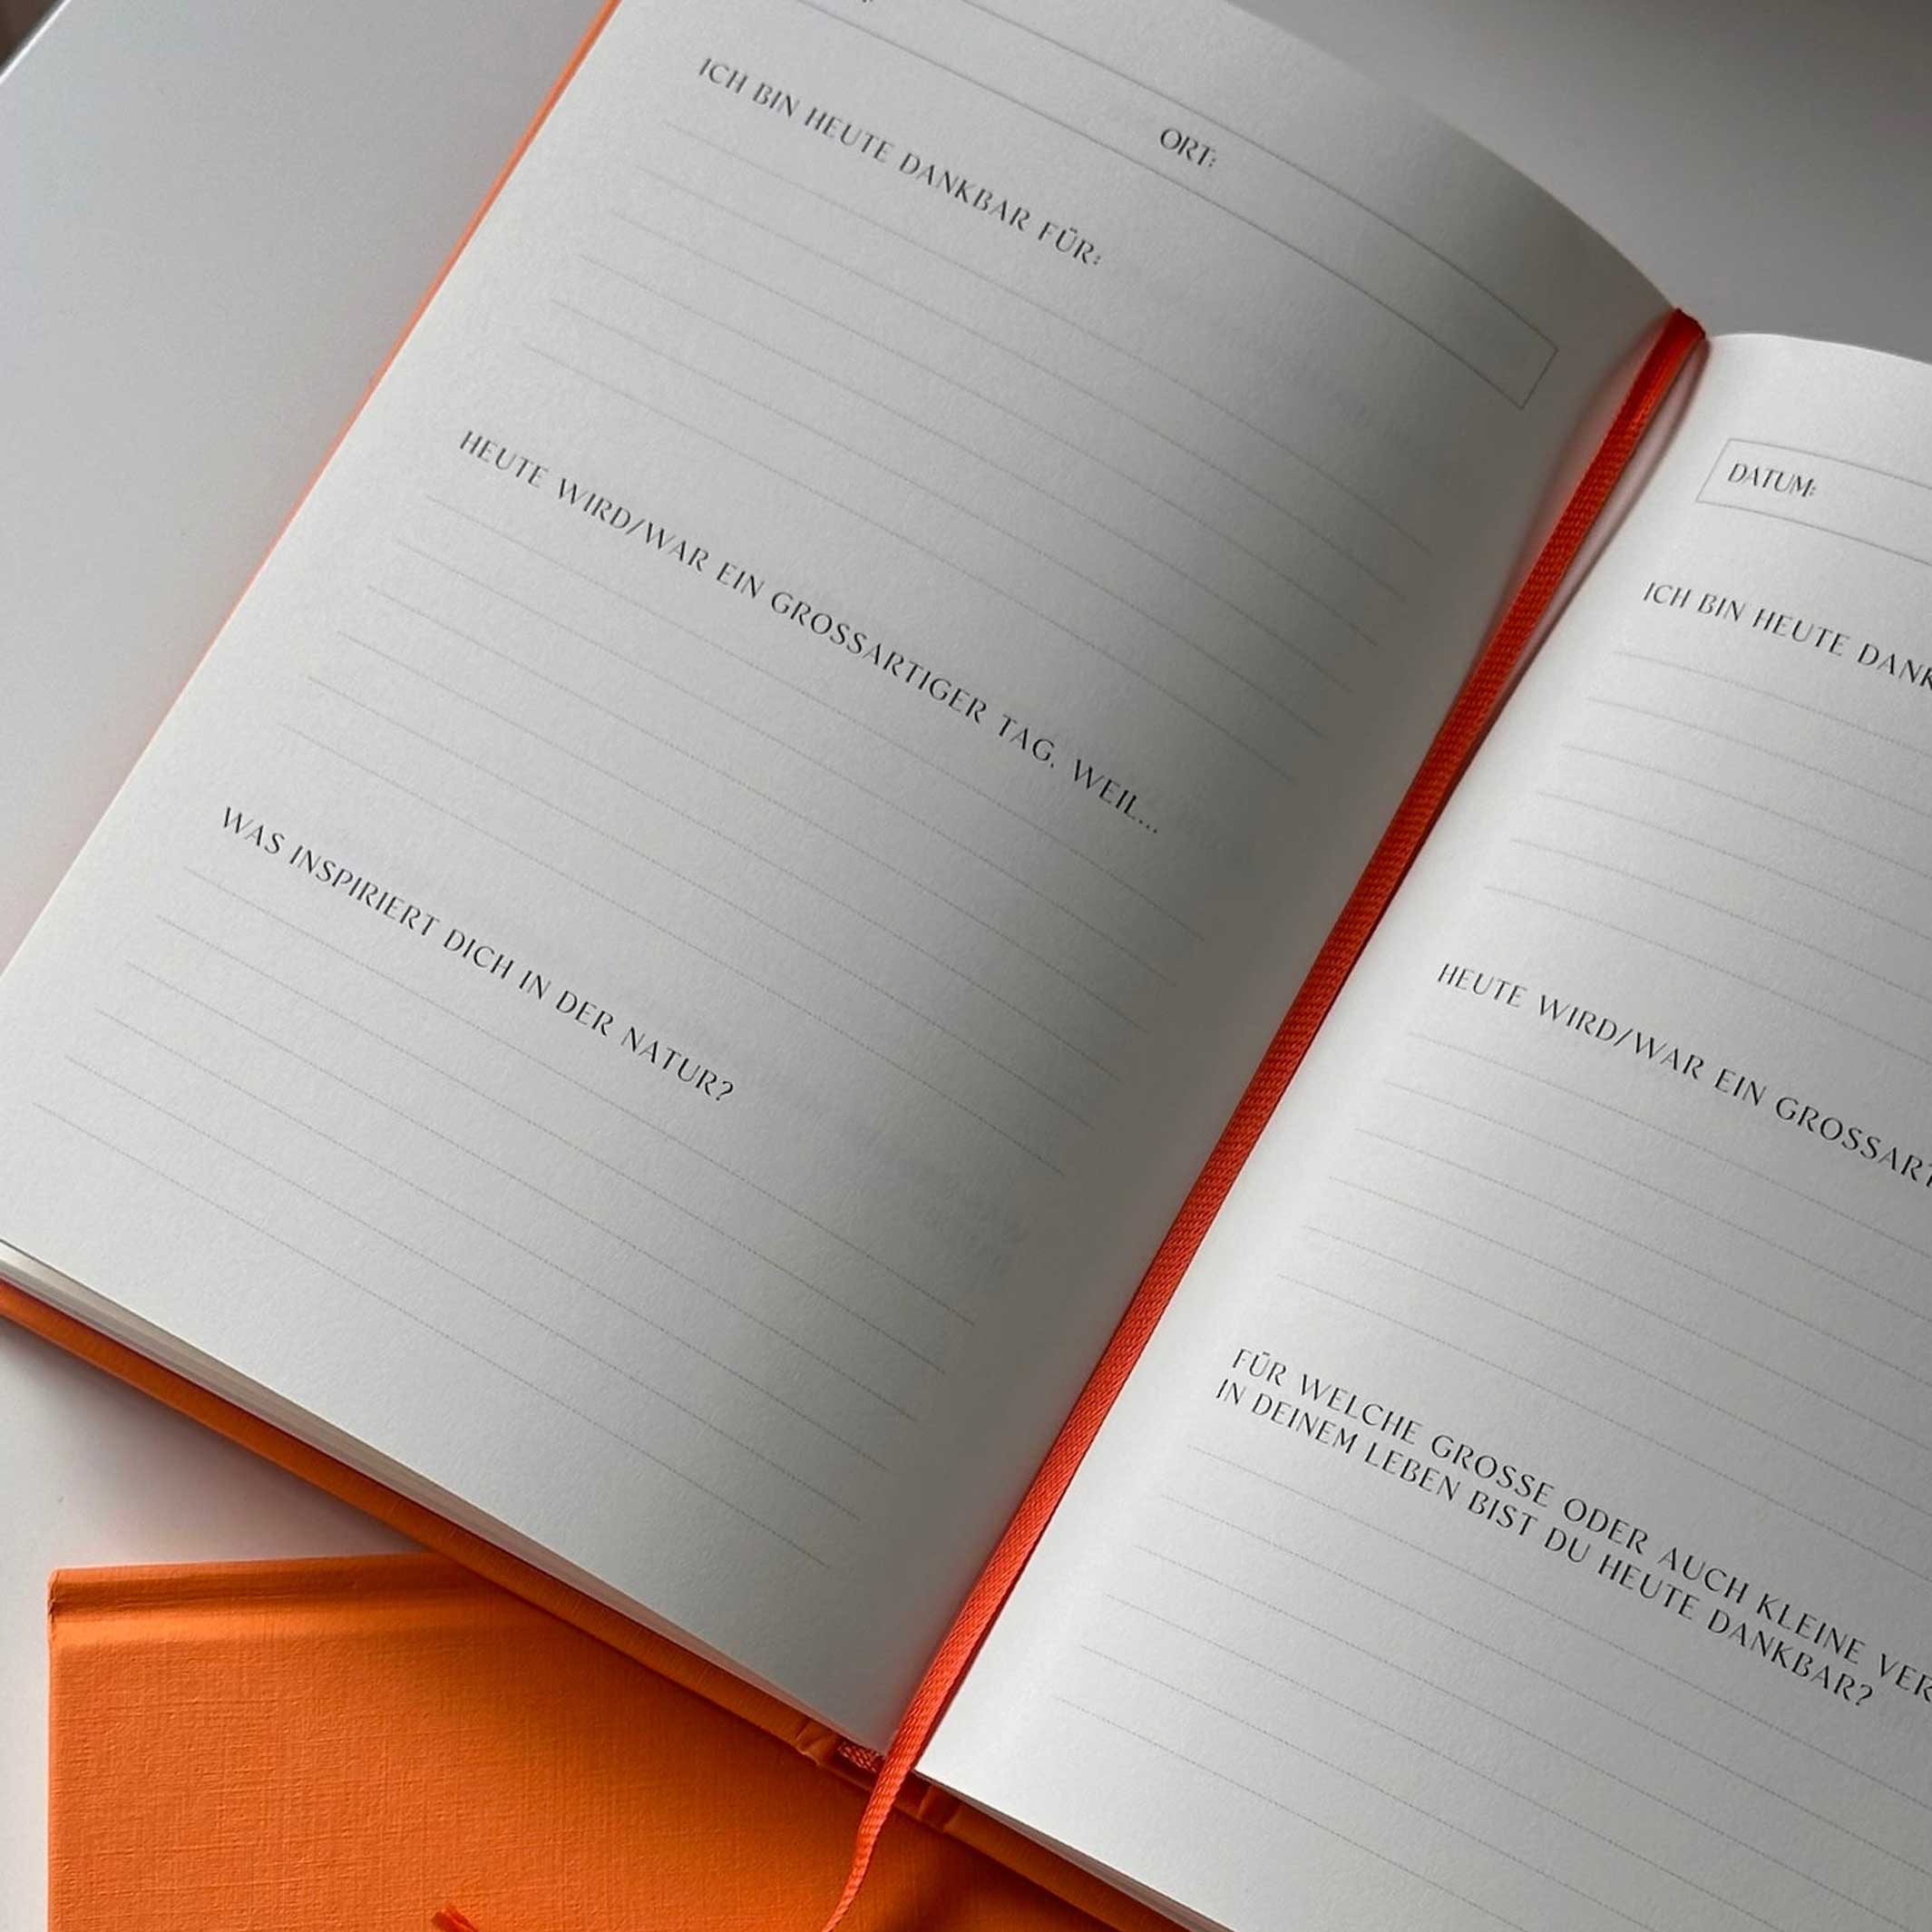 ORT:
ICH BIN HEUTE DANKBAR FÜR:
HEUTE WIRD/WAR EIN GROSSARTIGER TAG, WEIL...
WAS INSPIRIERT DICH IN DER NATUR?
DATUM:
ICH BIN HEUTE
HEUTE WIRD/WAR EIN
FÜR WELCHE GROSSE ODER AUCH KLEINE
IN DEINEM LEBEN BIST DU HEUTE DANKBAR?